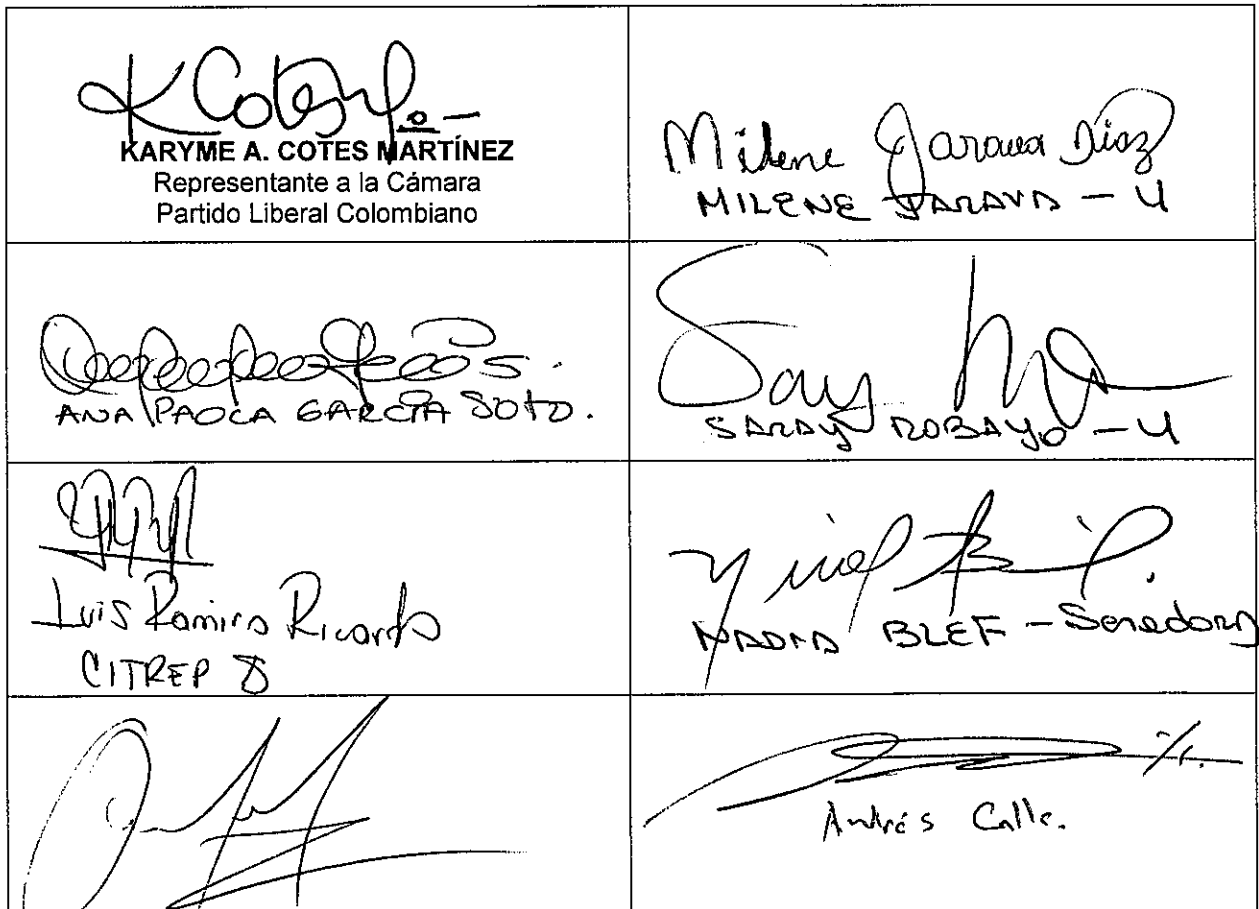 KARYME A. COTES MARTÍNEZ
Representante a la Cámara
Partido Liberal Colombiano
Milene Jarava Díaz
MILENE JARAVA - U
ANA PAOLA GARCÍA SOTO.
SARAY ROBAYO - U
Luis Ramiro Ricardo
CITREP 8
NADIA BLEF - Senadora
Andrés Calle.